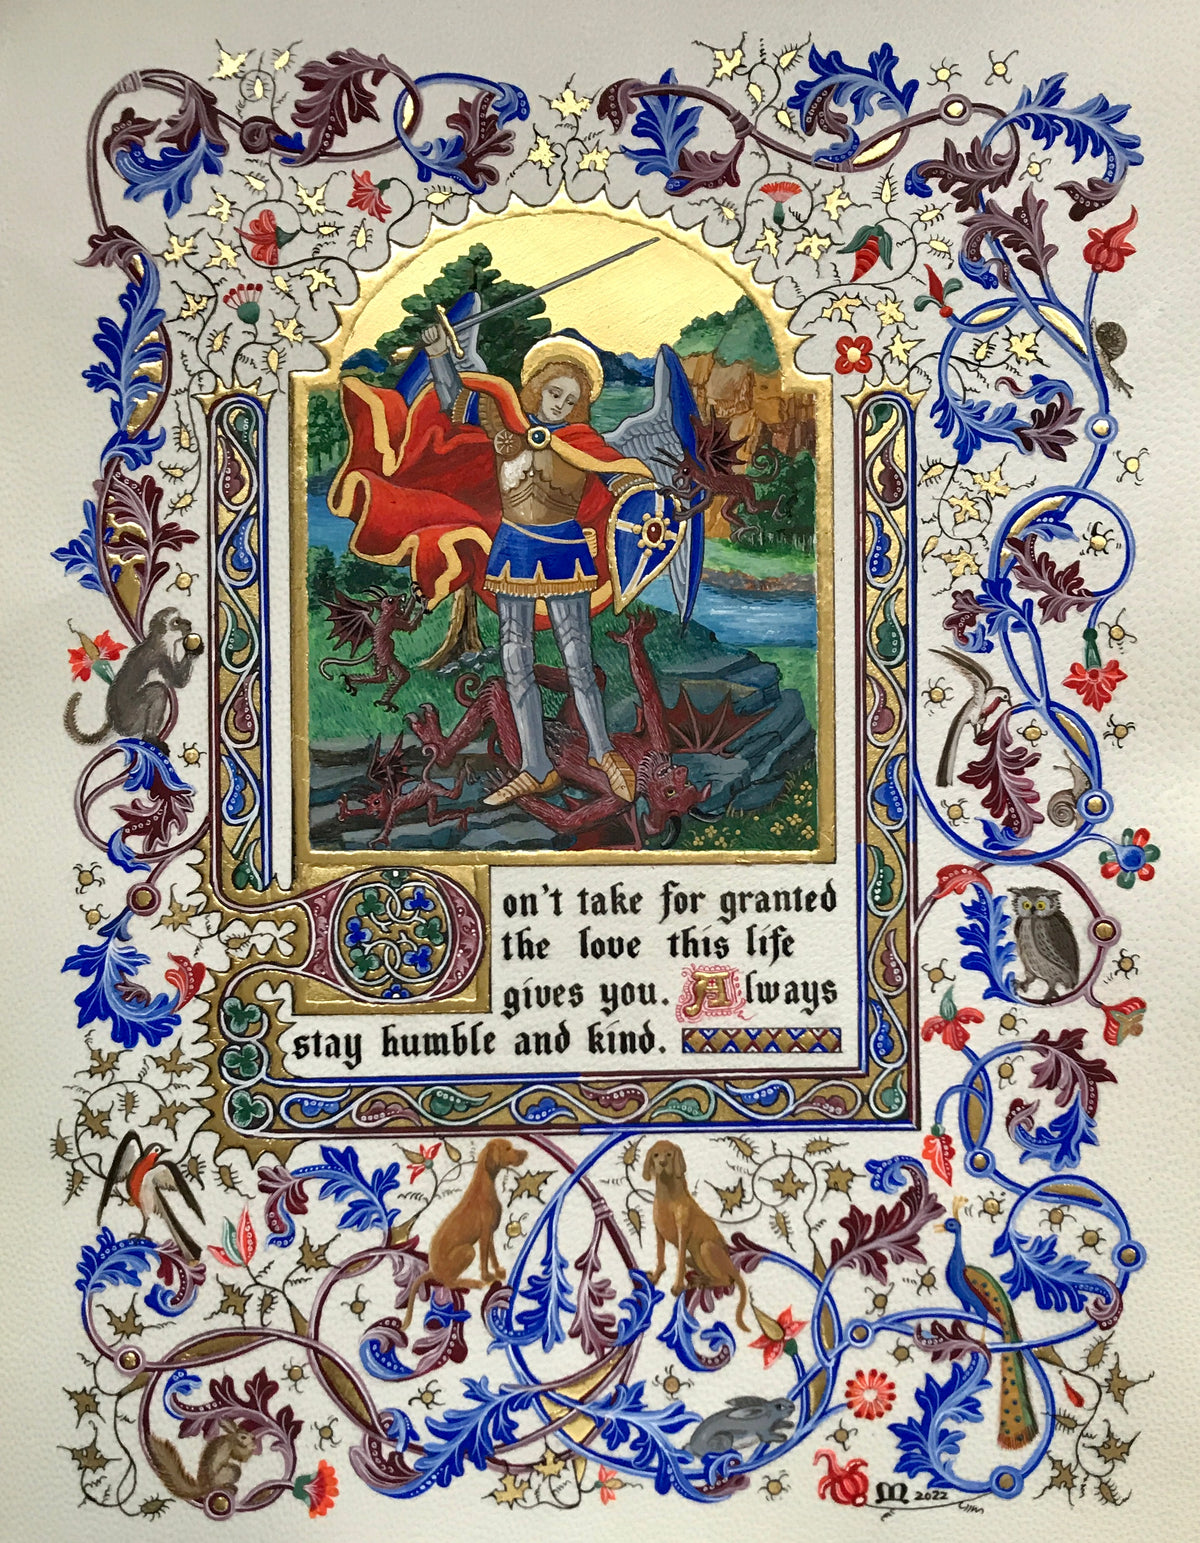 Don't take for granted
the love this life
gives you. Always
stay humble and kind.
M 2022